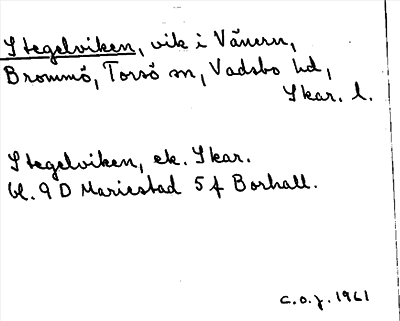 Stegelviken, vik i Vänern,
Brommö, Torsö sn, Vadsbo hd,
Skar. l.
Stegelviken, ek. Skar.
bl. 9 D Mariestad 5 f Borhall.
C.O.J. 1961